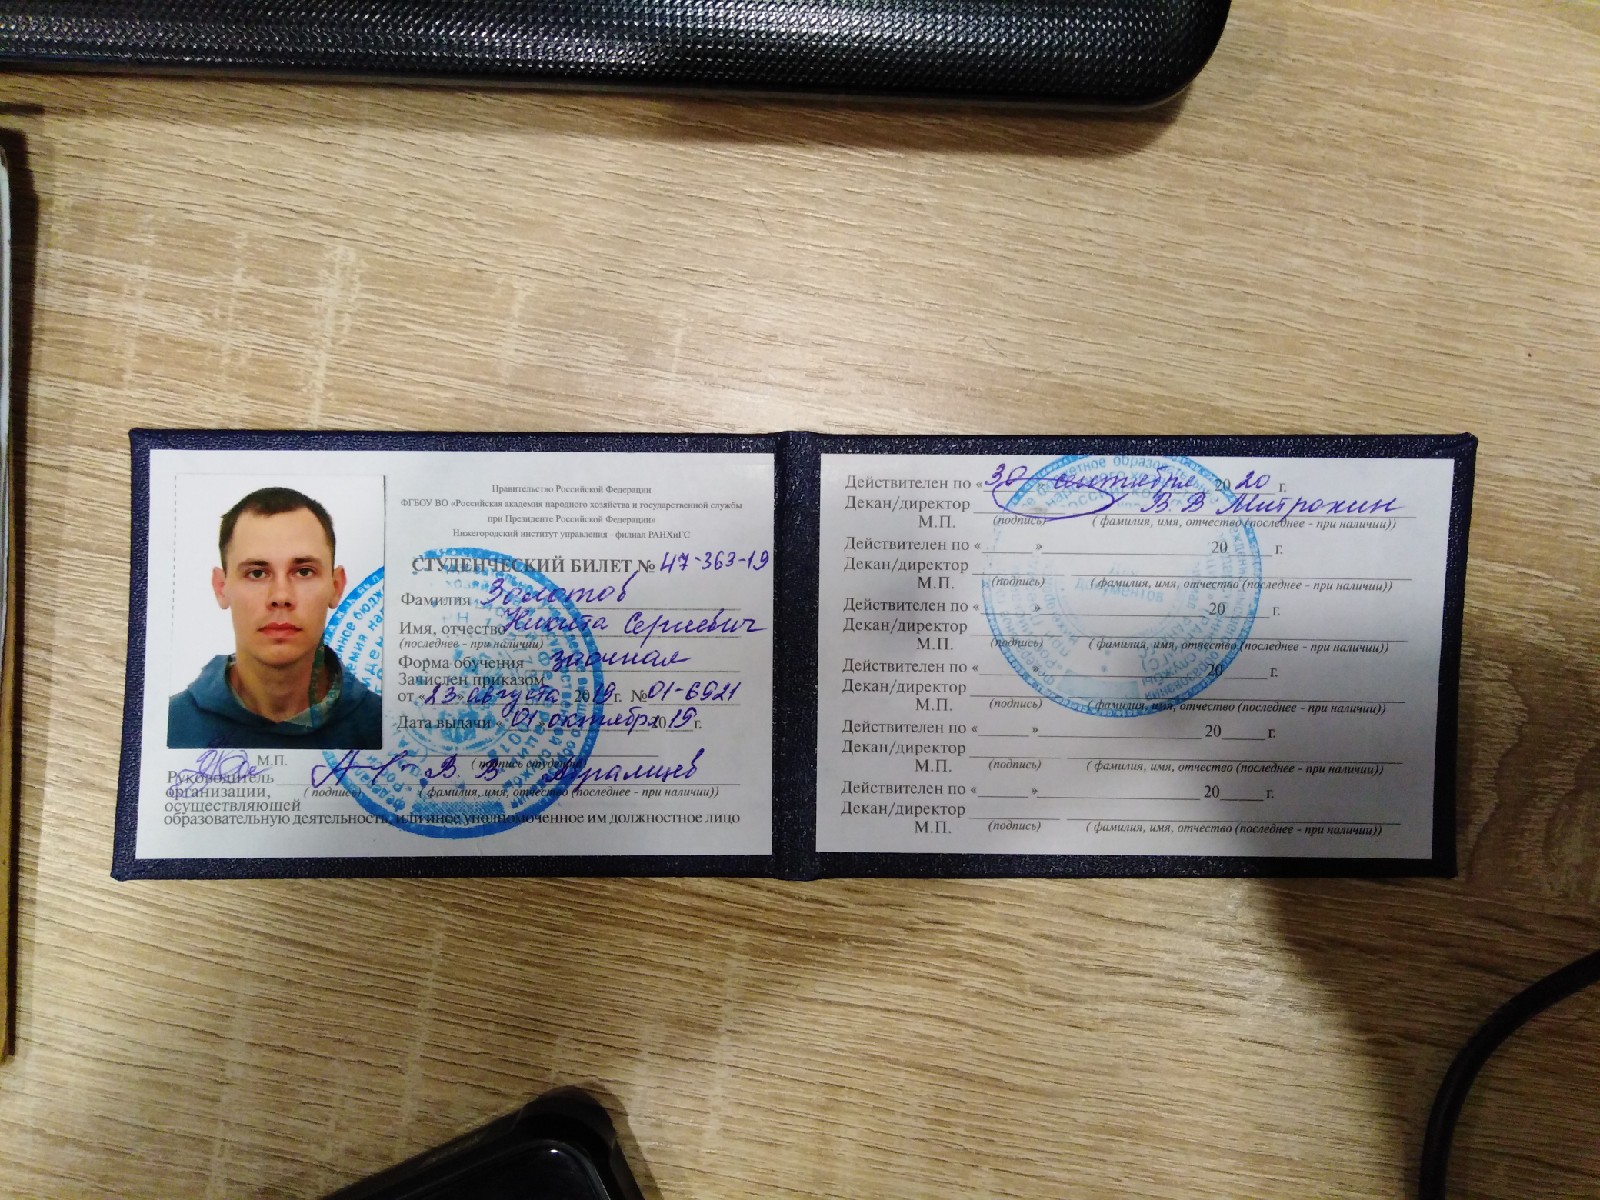 Правительство Российской Федерации
ФГБОУ ВО «Российская академия народного хозяйства и государственной службы
при Президенте Российской Федерации»
Нижегородский институт управления - филиал РАНХиГС
СТУДЕНЧЕСКИЙ БИЛЕТ № 47-363-19
Фамилия Золотов
Имя, отчество Никита Сергеевич
(последнее - при наличии)
Форма обучения заочная
Зачислен приказом
от «23» августа 2019 г. № 01-6921
Дата выдачи «01» октября 2019 г.
(подпись студента)
М.П.
Руководитель В. В.
организации, (подпись) (фамилия, имя, отчество (последнее - при наличии))
осуществляющей
образовательную деятельность, или иное уполномоченное им должностное лицо
Действителен по «30» сентября 2020 г.
Декан/директор В. В. Митрохин
М.П. (подпись) (фамилия, имя, отчество (последнее - при наличии))
Действителен по « » 20 г.
Декан/директор
М.П. (подпись) (фамилия, имя, отчество (последнее - при наличии))
Действителен по « » 20 г.
Декан/директор
М.П. (подпись) (фамилия, имя, отчество (последнее - при наличии))
Действителен по « » 20 г.
Декан/директор
М.П. (подпись) (фамилия, имя, отчество (последнее - при наличии))
Действителен по « » 20 г.
Декан/директор
М.П. (подпись) (фамилия, имя, отчество (последнее - при наличии))
Действителен по « » 20 г.
Декан/директор
М.П. (подпись) (фамилия, имя, отчество (последнее - при наличии))